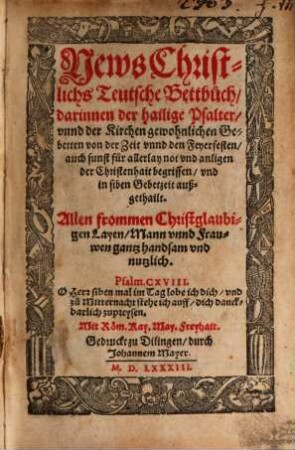 News Christ-
lichs Teutsche Bettbüch/
darinnen der hailige Psalter/
vnnd der Kirchen gewohnlichen Ge-
betten von der Zeit vnnd den Feyerfesten/
auch sunst für allerlay not vnd anligen
der Christenhait begriffen/ vnd
in siben Gebetzeit auß-
gethailt.
Allen frommen Christglaubi-
gen Layen/ Mann vnnd Frau-
wen gantz handsam vnd
nutzlich.
Psalm. CXVIII.
O Herr siben mal im Tag lobe ich dich/ vnd
zü Mitternacht stehe ich auff/ dich danck-
barlich zupreysen.
Mit Röm. Kay. May. Freyhait.
Gedruckt zu Dilingen/ durch
Johannem Mayer.
M. D. LXXXIII.